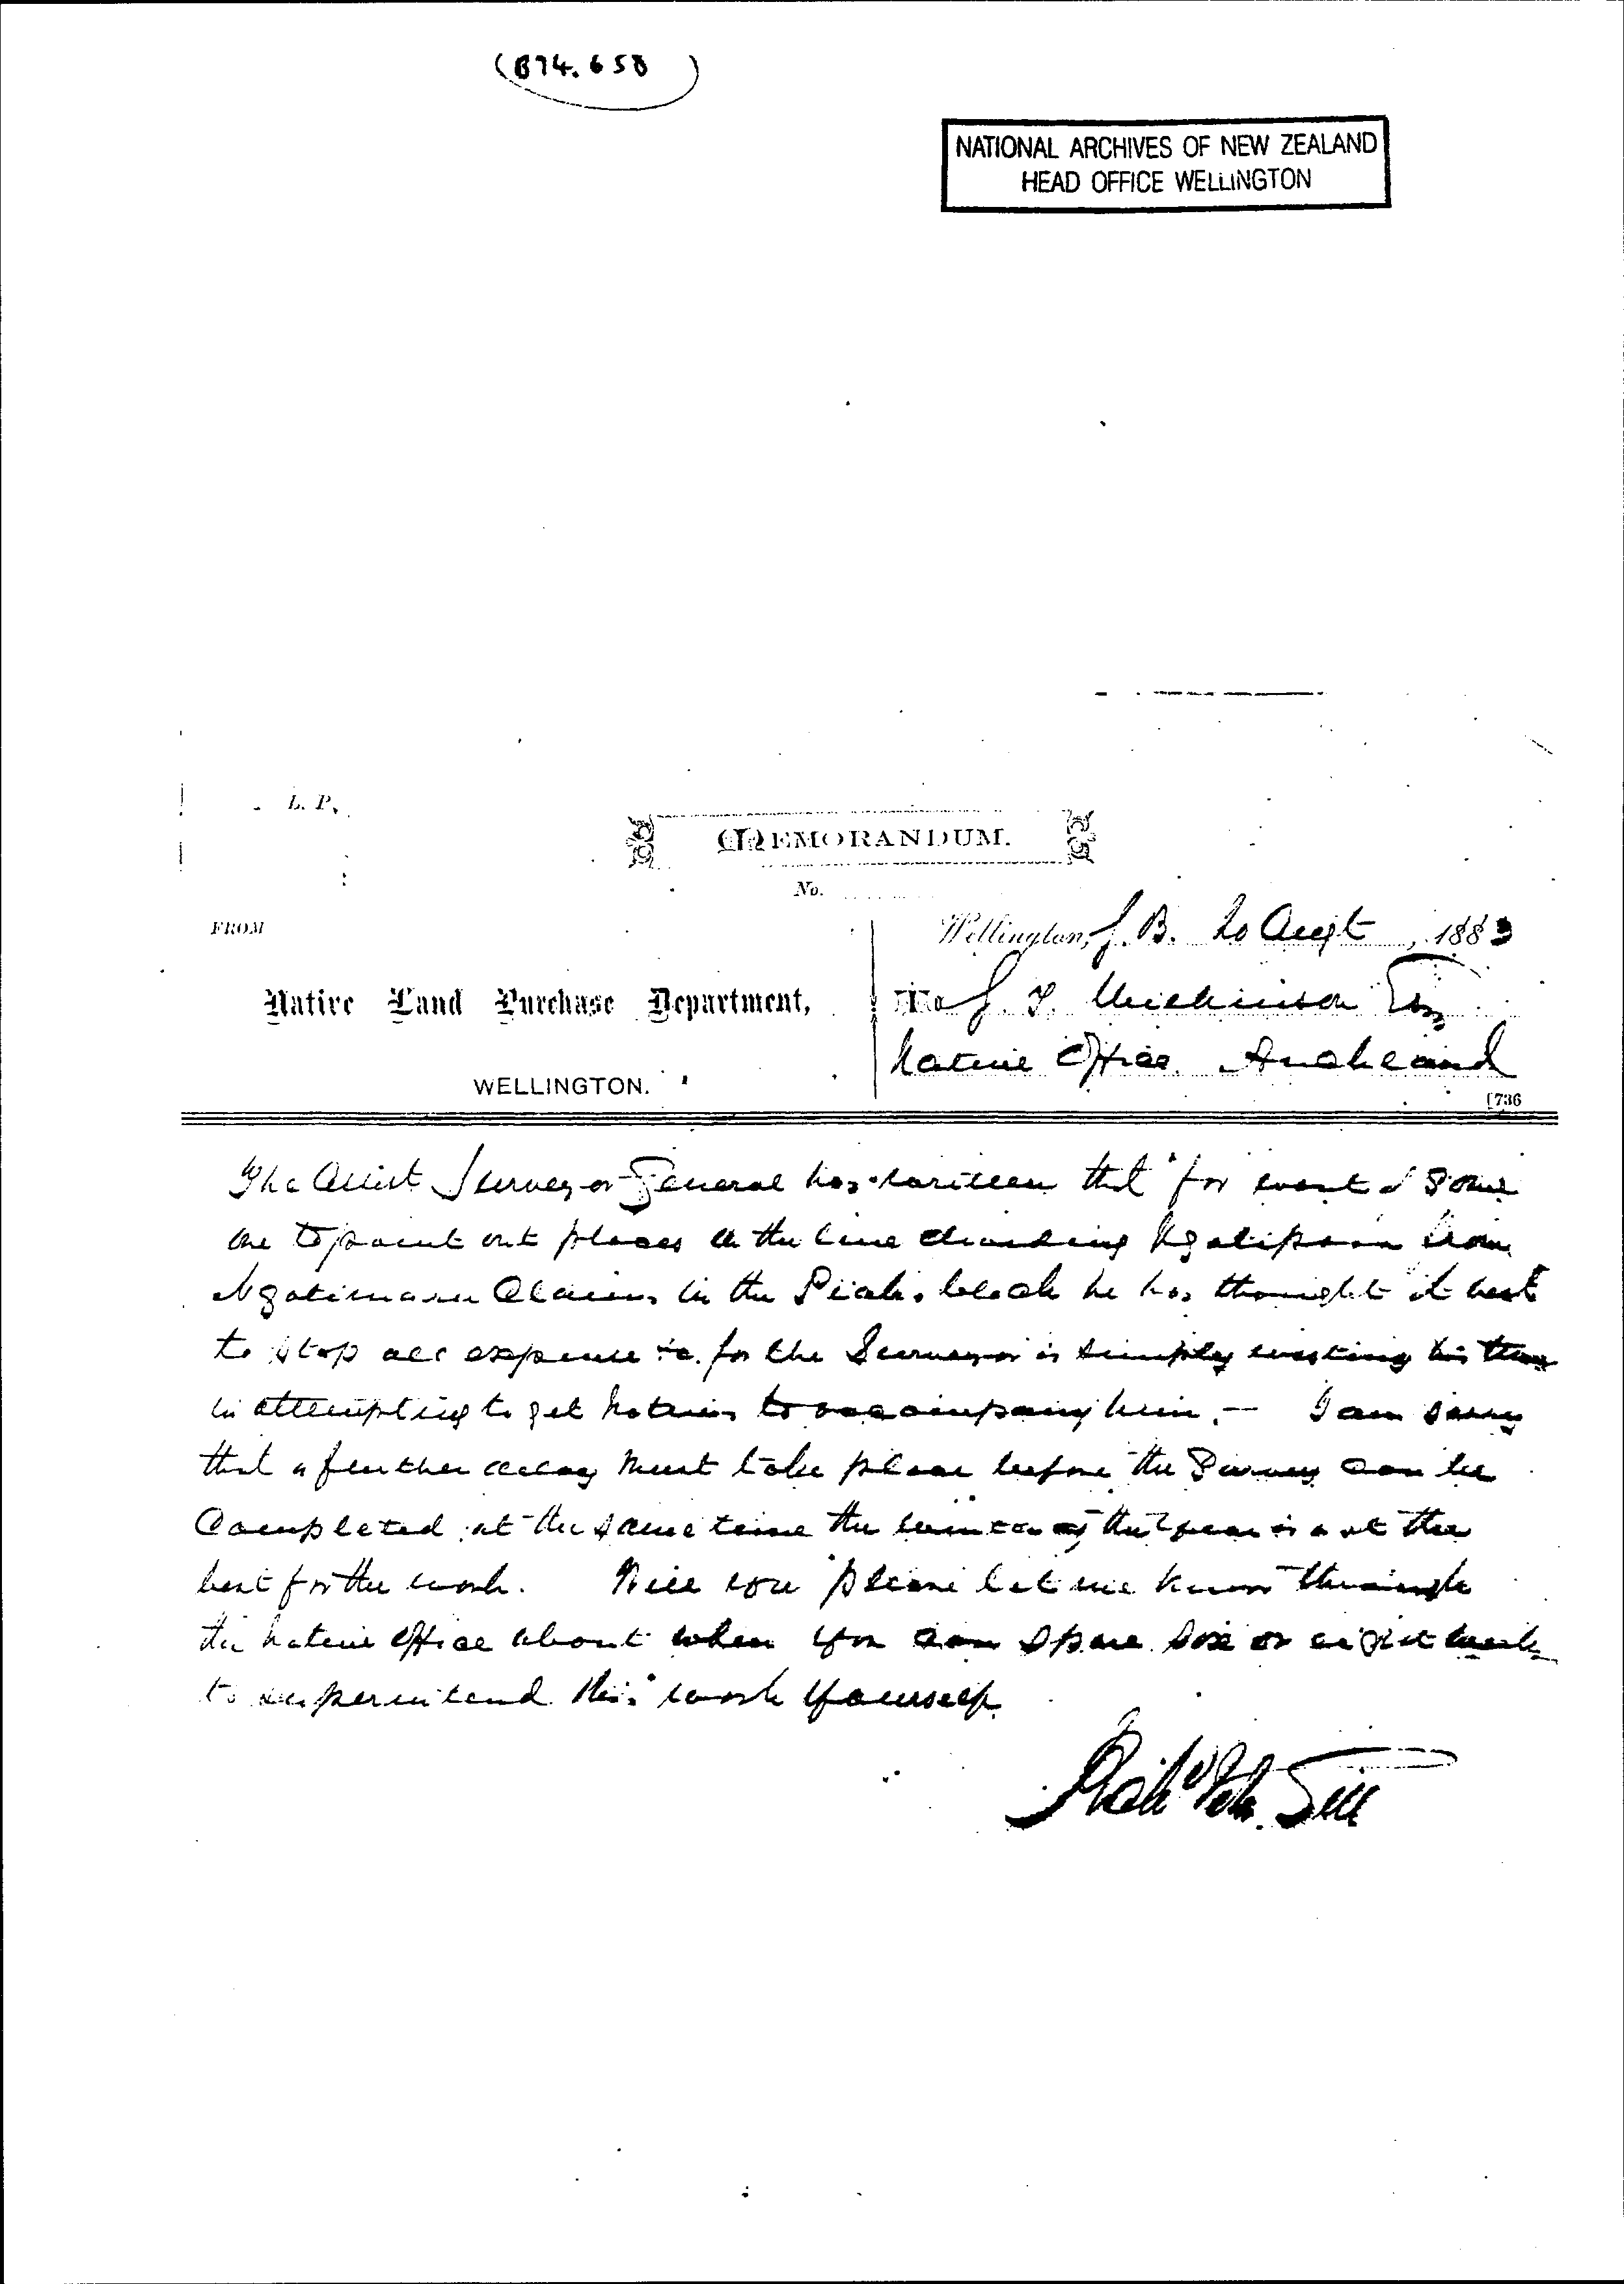 (B74.658)
NATIONAL ARCHIVES OF NEW ZEALAND
HEAD OFFICE WELLINGTON
L. P.
MEMORANDUM.
No.
FROM
Wellington, 20 Augt, 1883
Native Land Purchase Department,
To
Native Office Auckland
WELLINGTON.
[736
The Assist Surveyor General has written that for want of some
one to point out places on the line dividing Ngatipaoa from
Ngatimaru Claims in the Piako block he has thought it best
to stop all expense &c. for the Surveyor is simply wasting his time
in attempting to get natives to accompany him. — I am sorry
that a further delay must take place before the Survey can be
Completed at the same time the winter of the year is not the
best for the work. Will you please let me know through
the native office about when you can spare six or eight weeks
to superintend this work yourself.